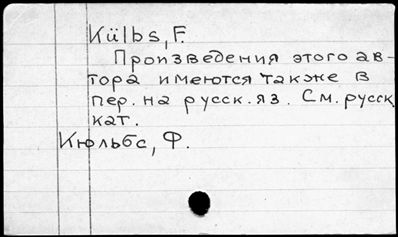 Külbs, F.
Произведения этого ав-
тора имеются также в
пер. на русск. яз. См. русск.
кат.
Кюльбс, Ф.